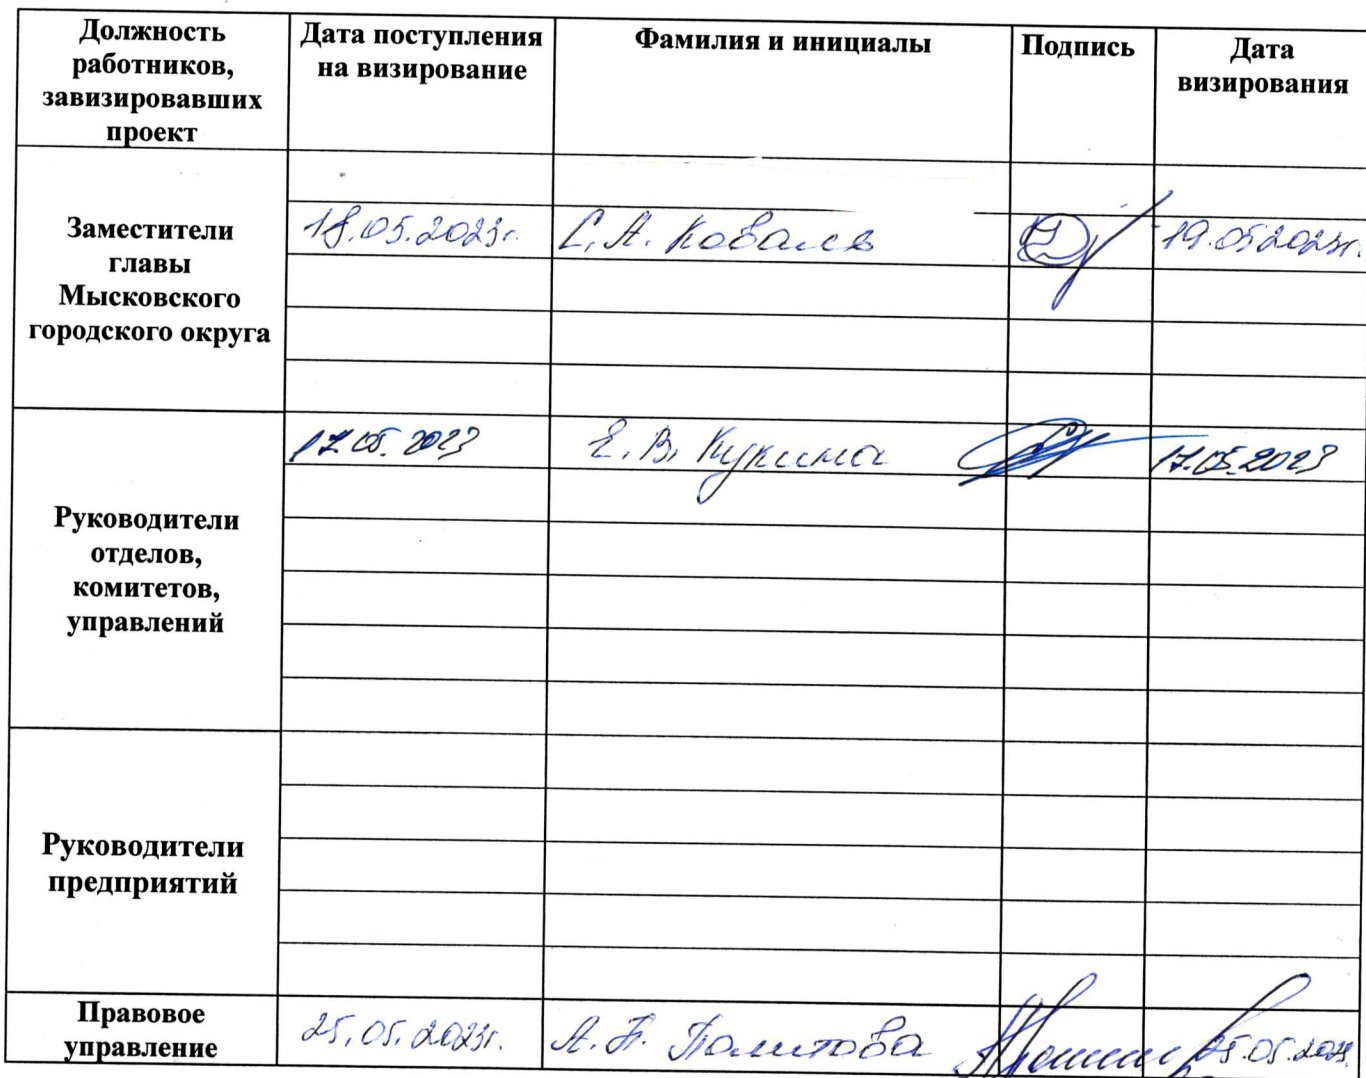 Должность
работников,
завизировавших
проект
Дата поступления
на визирование
Фамилия и инициалы
Подпись
Дата
визирования
Заместители
главы
Мысковского
городского округа
18.05.2023г.
С.А. Ковалев
19.05.2023г.
Руководители
отделов,
комитетов,
управлений
17.05.2023
Е.В. Кукина
17.05.2023
Руководители
предприятий
Правовое
управление
25.05.2023г.
А.
25.05.2023